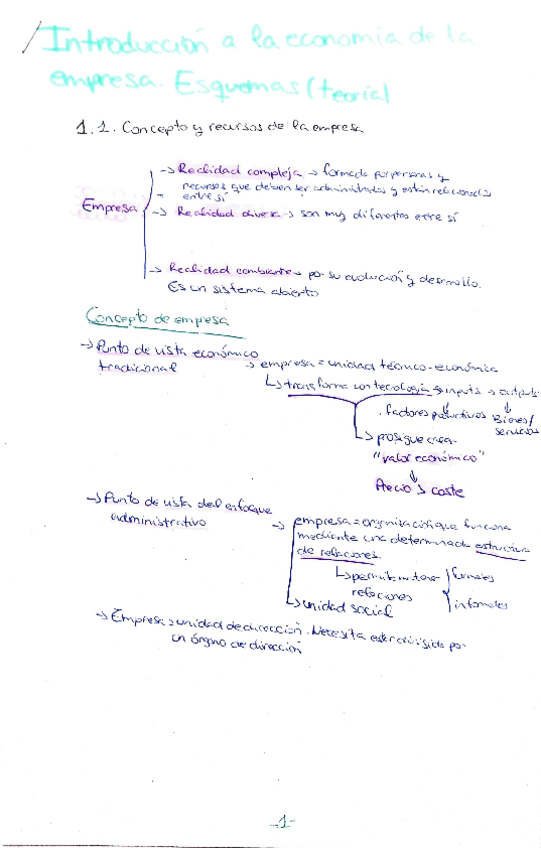 Introducción a la economía de la
empresa. Esquemas (teoría)
1.1. Concepto y recursos de la empresa
Empresa
→ Realidad compleja → formada por personas y
recursos que deben ser administrados y están relacionados
entre sí
→ Realidad diversa → son muy diferentes entre sí
→ Realidad cambiante → por su evolución y desarrollo.
Es un sistema abierto
Concepto de empresa
→ Punto de vista económico
tradicional
→ empresa = unidad técnico-económica
↳ transforma con tecnología inputs → outputs
factores productivos
Bienes/
servicios
↳ persigue crear
"valor económico"
Precio > coste
→ Punto de vista del enfoque
administrativo
→ empresa = organización que funciona
mediante una determinada estructura
de relaciones.
↳ permite mantener
relaciones
formales
informales
↳ unidad social
→ Empresa = unidad de dirección. Necesita estar dirigida por
un órgano de dirección
-1-